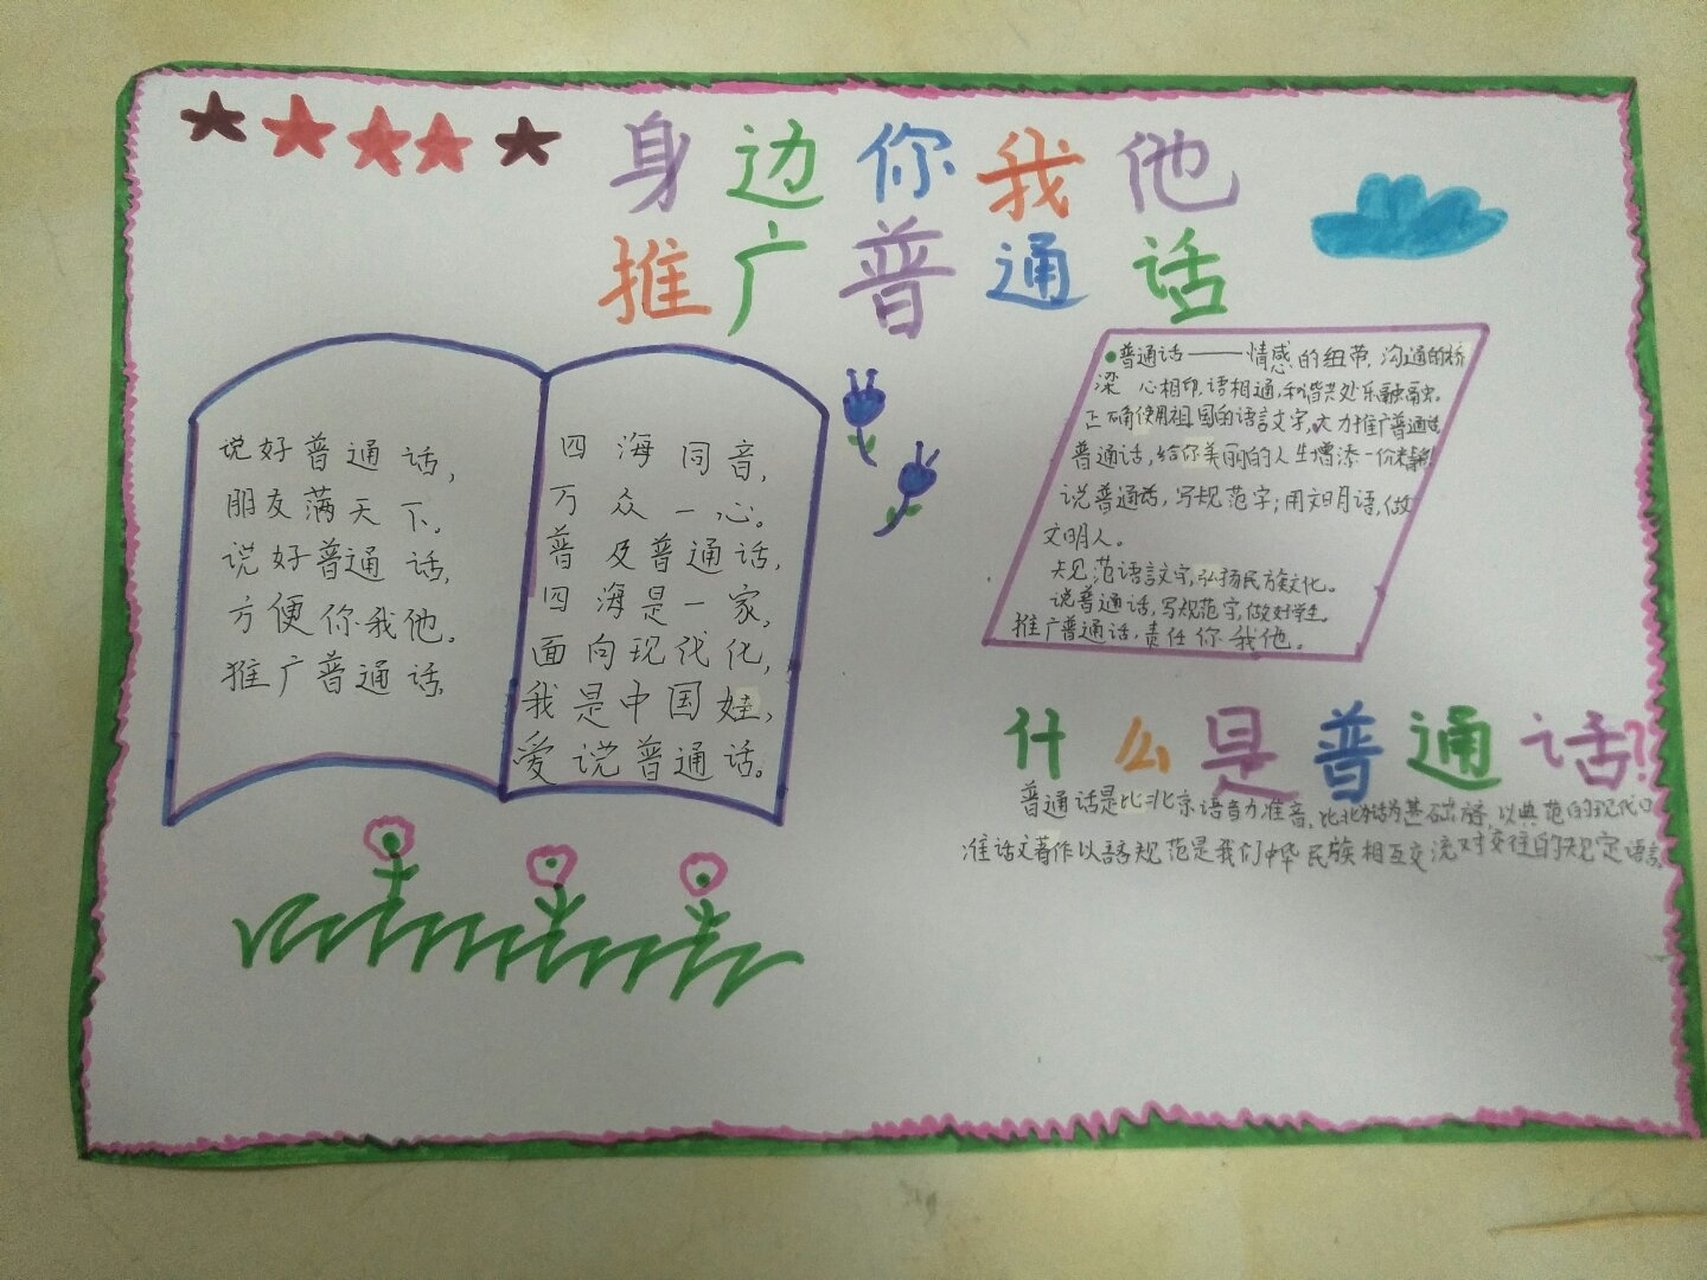 身边你我他
推广普通话
说好普通话,
朋友满天下。
说好普通话,
方便你我他。
推广普通话,
四海同音,
万众一心。
普及普通话,
四海是一家,
面向现代化,
我是中国娃,
爱说普通话。
普通话——情感的纽带,沟通的桥
梁 心相印,语相通,和谐共处乐融融。
正确使用祖国的语言文字,大力推广普通话
普通话,给你美丽的人生增添一份精彩!
说普通话,写规范字;用文明语,做
文明人。
规范语言文字,弘扬民族文化。
说普通话,写规范字,做好学生。
推广普通话,责任你我他。
什么是普通话?
普通话是比北京语音力准音,比北话为基础语,以典范的现代口
准话文著作以语规范是我们中华民族相互交流对交往的规定语言